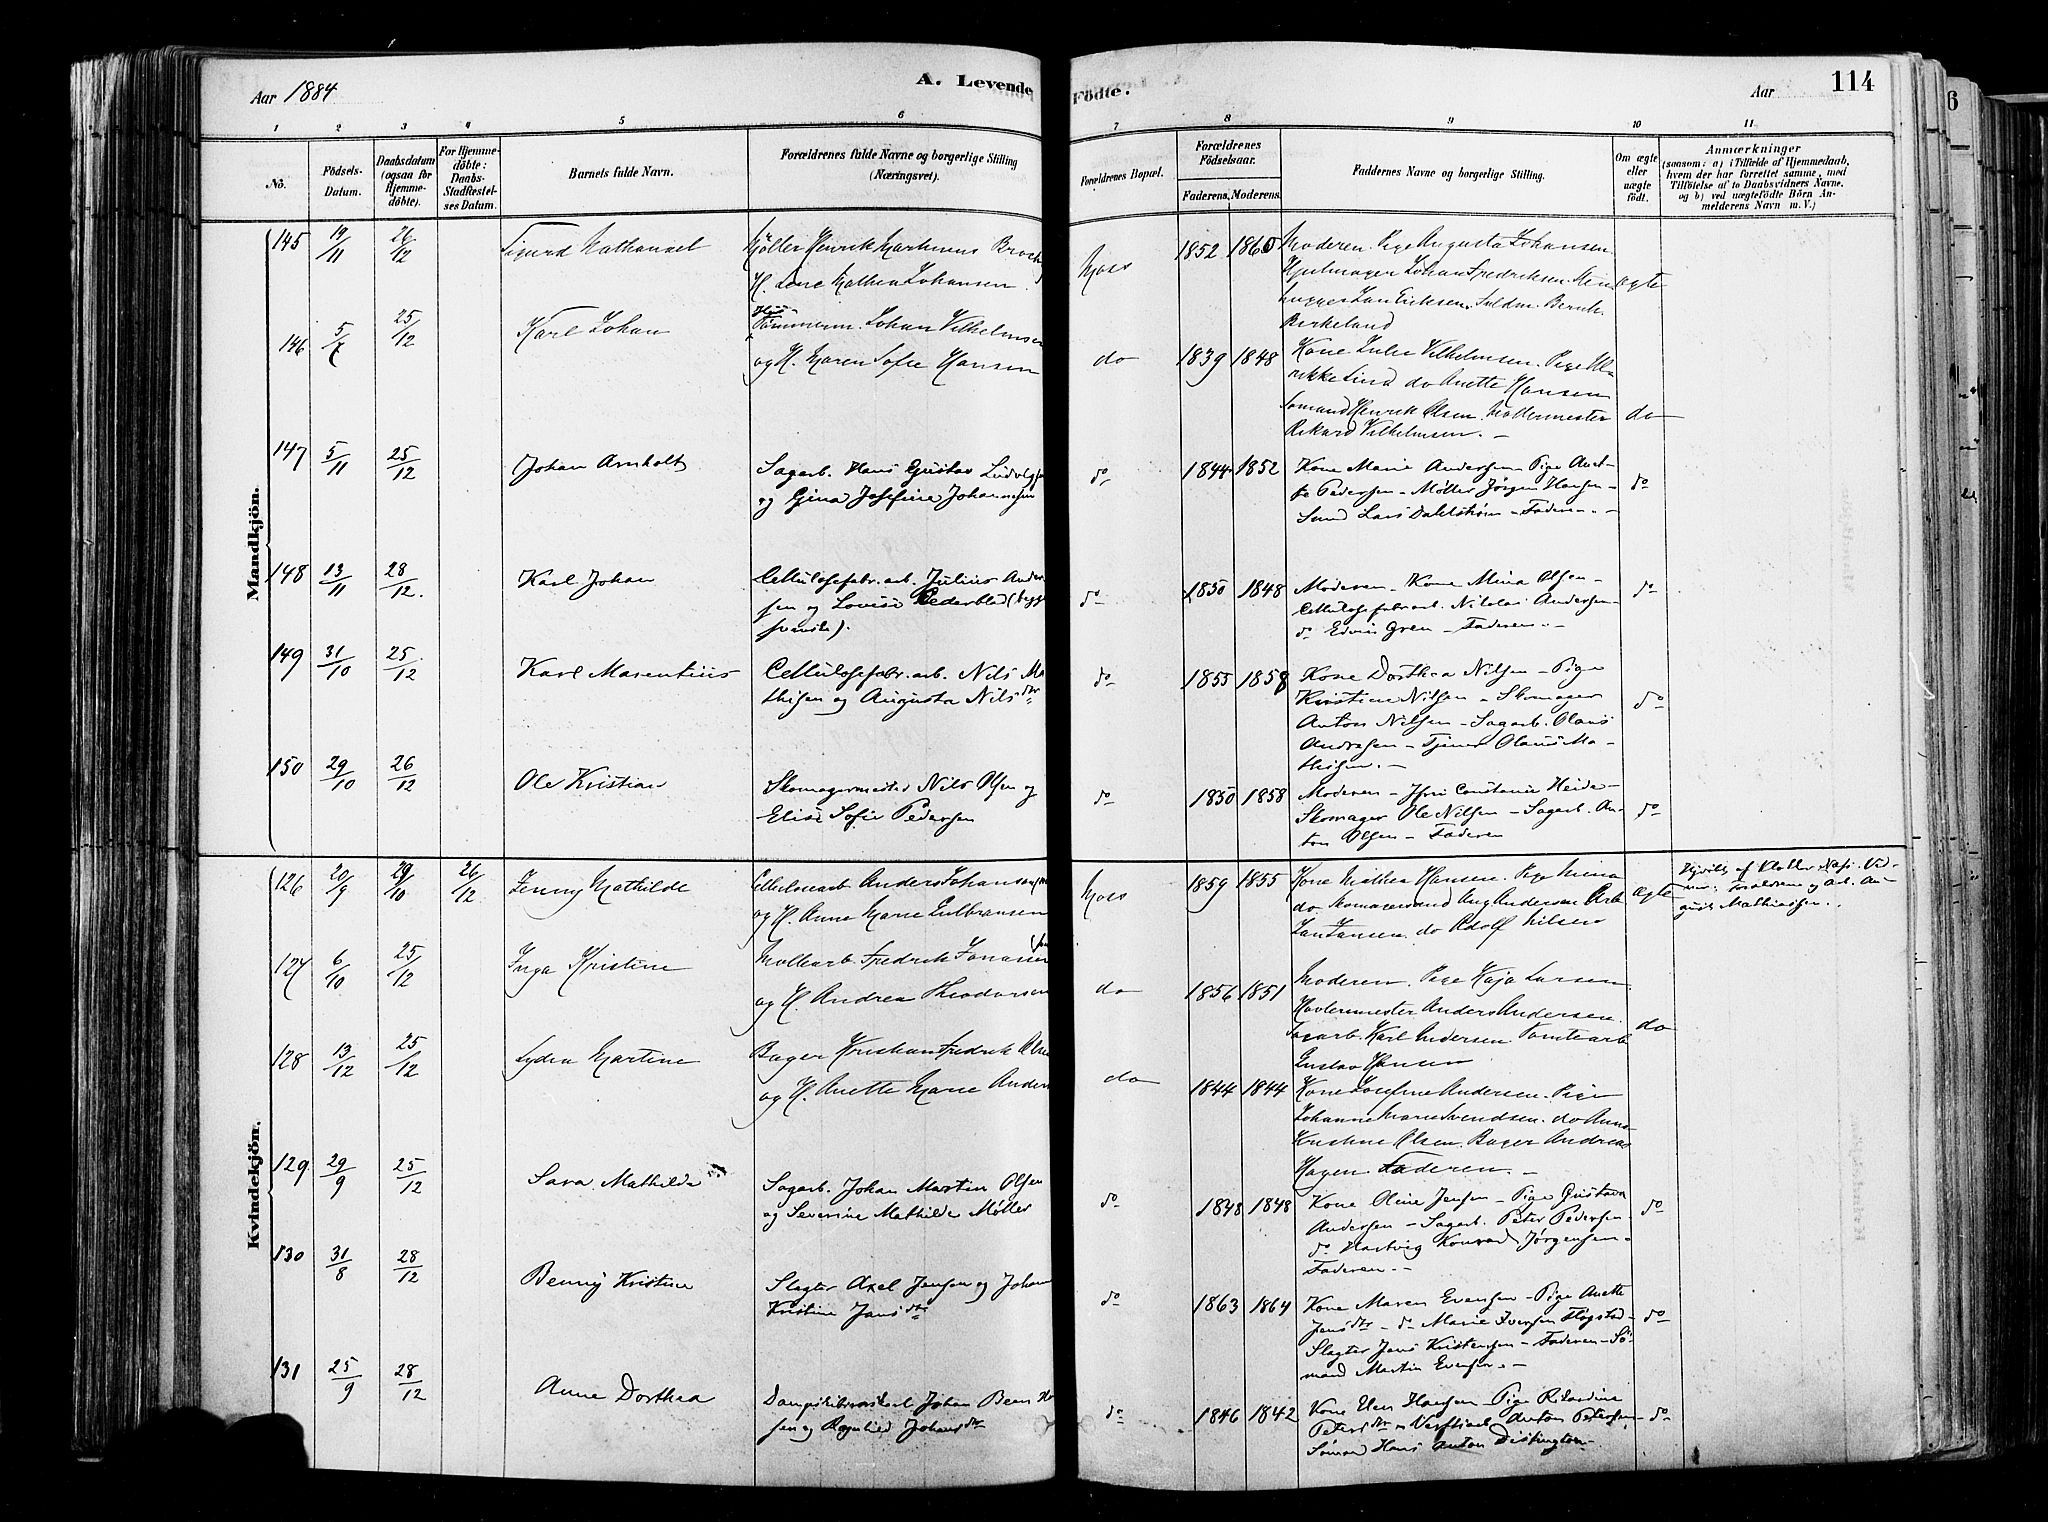 Aar 1884
A. Levende
Födte.
Aar
114
1 2 3 4 5 6 7 8 9 10 11
No.
Födsels-
Datum.
Daabsdatum
(ogsaa for
Hjemme-
döbte).
For Hjemme-
döbte:
Daabs-
Stadfæstel-
ses Datum.
Barnets fulde Navn.
Forældrenes fulde Navne og borgerlige Stilling
(Næringsvei).
Forældrenes Bopæl.
Forældrenes
Födselsaar.
Faderens. Moderens.
Faddernes Navne og borgerlige Stilling.
Om ægte
eller
uægte
födt.
Anmærkninger
(saasom: a) i Tilfælde af Hjemmedaab,
hvem der har forrettet samme, med
Tilföielse af to Daabsvidners Navne.
og b) ved uægtefödte Börn An-
melderens Navn m. V.)
Mandkjön.
145 19/11 26/12 Sigurd Nathanael Möller Henrik Brock
H. Lene Mathea Johansen.
Moss 1852 1860 Moderen. Pige Augusta Johansen
Hjulmager Johan Fredriksen.
Jan Eriksen.
Birkeland
ægte
146 5/7 25/12 Karl Johan Tömmerm. Johan Vilhelmsen
og H. Maren Sofie Hansen
do 1839 1848 Kone Julie Vilhelmsen. Pige Ul-
rikke Lind do Anette Hansen
Sömand Henrik Olsen. Mollermester
Rikard Vilhelmsen. –
do
147 5/11 25/12 Johan Arnholt Sagarb. Hans Gustav Ludvigsen
og Gina Josefine Johannesen
do 1844 1852 Kone Marie Andersen – Pige Anet-
te Pedersen – Møller Jørgen Hansen –
Smed Lars Dahlstrøm – Faderen. –
do
148 13/11 28/12. Karl Johan Cellulosefabr. arb. Julius Ander-
sen og Lovise Cederblad (begge
svenske).
do 1850 1848 Moderen – Kone Mina Olsen –
Cellulosefabr. arb. Nikolai Andersen –
do Edvin Gren – Faderen. –
do
149 31/10 25/12 Karl Marentius Cellulosefabr. arb. Nils Ma-
thisen og Augusta Nilsdtr
do 1855 1858 Kone Dorthea Nilsen – Pige
Kristine Nilsen – Skomager
Anton Nilsen – Sagarb. Olaus
Andersen – Tjener Olaus Ma-
thisen. –
do
150 29/10 26/12 Ole Kristian Skomagermester Nils Olsen og
Elise Sofie Pedersen
do 1850 1858 Moderen – Jfru Constance Heide –
Skomager Ole Nilsen – Sagarb. An-
ton Olsen – Faderen
do
Kvindekjön.
126 20/9 29/10 26/12 Jenny Mathilde Cellulosearb Anders Johansen
og H. Anne Marie Gulbransen
Moss 1859 1855 Kone Mathea Hansen. Pige Mina
do. Aug Andersen Arb
Jan Jansen. do Adolf Nilsen
Ægte
Forældrene og Arb. Au-
gust Mathiassen.
127 6/10 25/12 Inga Kristine Möllearb. Fredrik Jonassen
og H. Andrea Theodorsen
do 1856 1851 Moderen. Pige Kaja Larsen
Hovlermester Anders Andersen.
Sagarb. Karl Andersen Tomtearb
Gustav Hansen
do
128 13/12 25/12 Lydia Martine Bager Kristian Fredrik Olsen
og H. Anette Marie Anders
do 1844 1844 Kone Josefine Andersen. Pige
Johanne Marie Svendsen. do Anna
Kristine Olsen. Bager Andreas
Hagen. Faderen. –
129 29/9 25/12 Sara Mathilde Sagarb. Johan Martin Olsen
og Severine Mathilde Møller
do 1848 1848 Kone Oline Jensen – Pige Gustava
Andersen – Sagarb. Peter Pedersen
do Hartvig Konrad Jørgensen –
Faderen. –
do
130 31/8 28/12 Benny Kristine Slagter Axel Jensen og Johan
Kristine Jansdtr
do 1863 1864 Kone Maren Evensen – Pige Anette
Jensdtr – do Marie Iversen Høgstad –
Slagter Jens Kristensen – Faderen – Sö-
mand Martin Evensen. –
do
131 25/9 28/12 Anne Dorthea Johan Bernt
sen og Ragnhild Johansdtr
do 1846 1842 Kone Elen Hansen – Pige Rikardine
Petersdtr – Anton Petersen –
Sömand Hans Anton Distington –
do